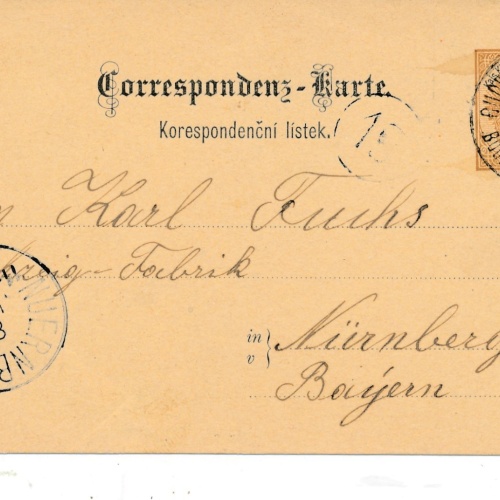 Correspondenz-Karte.
Korespondenční lístek.
n Karl Fuchs
Fabrik
in Nürnberg
v Bayern